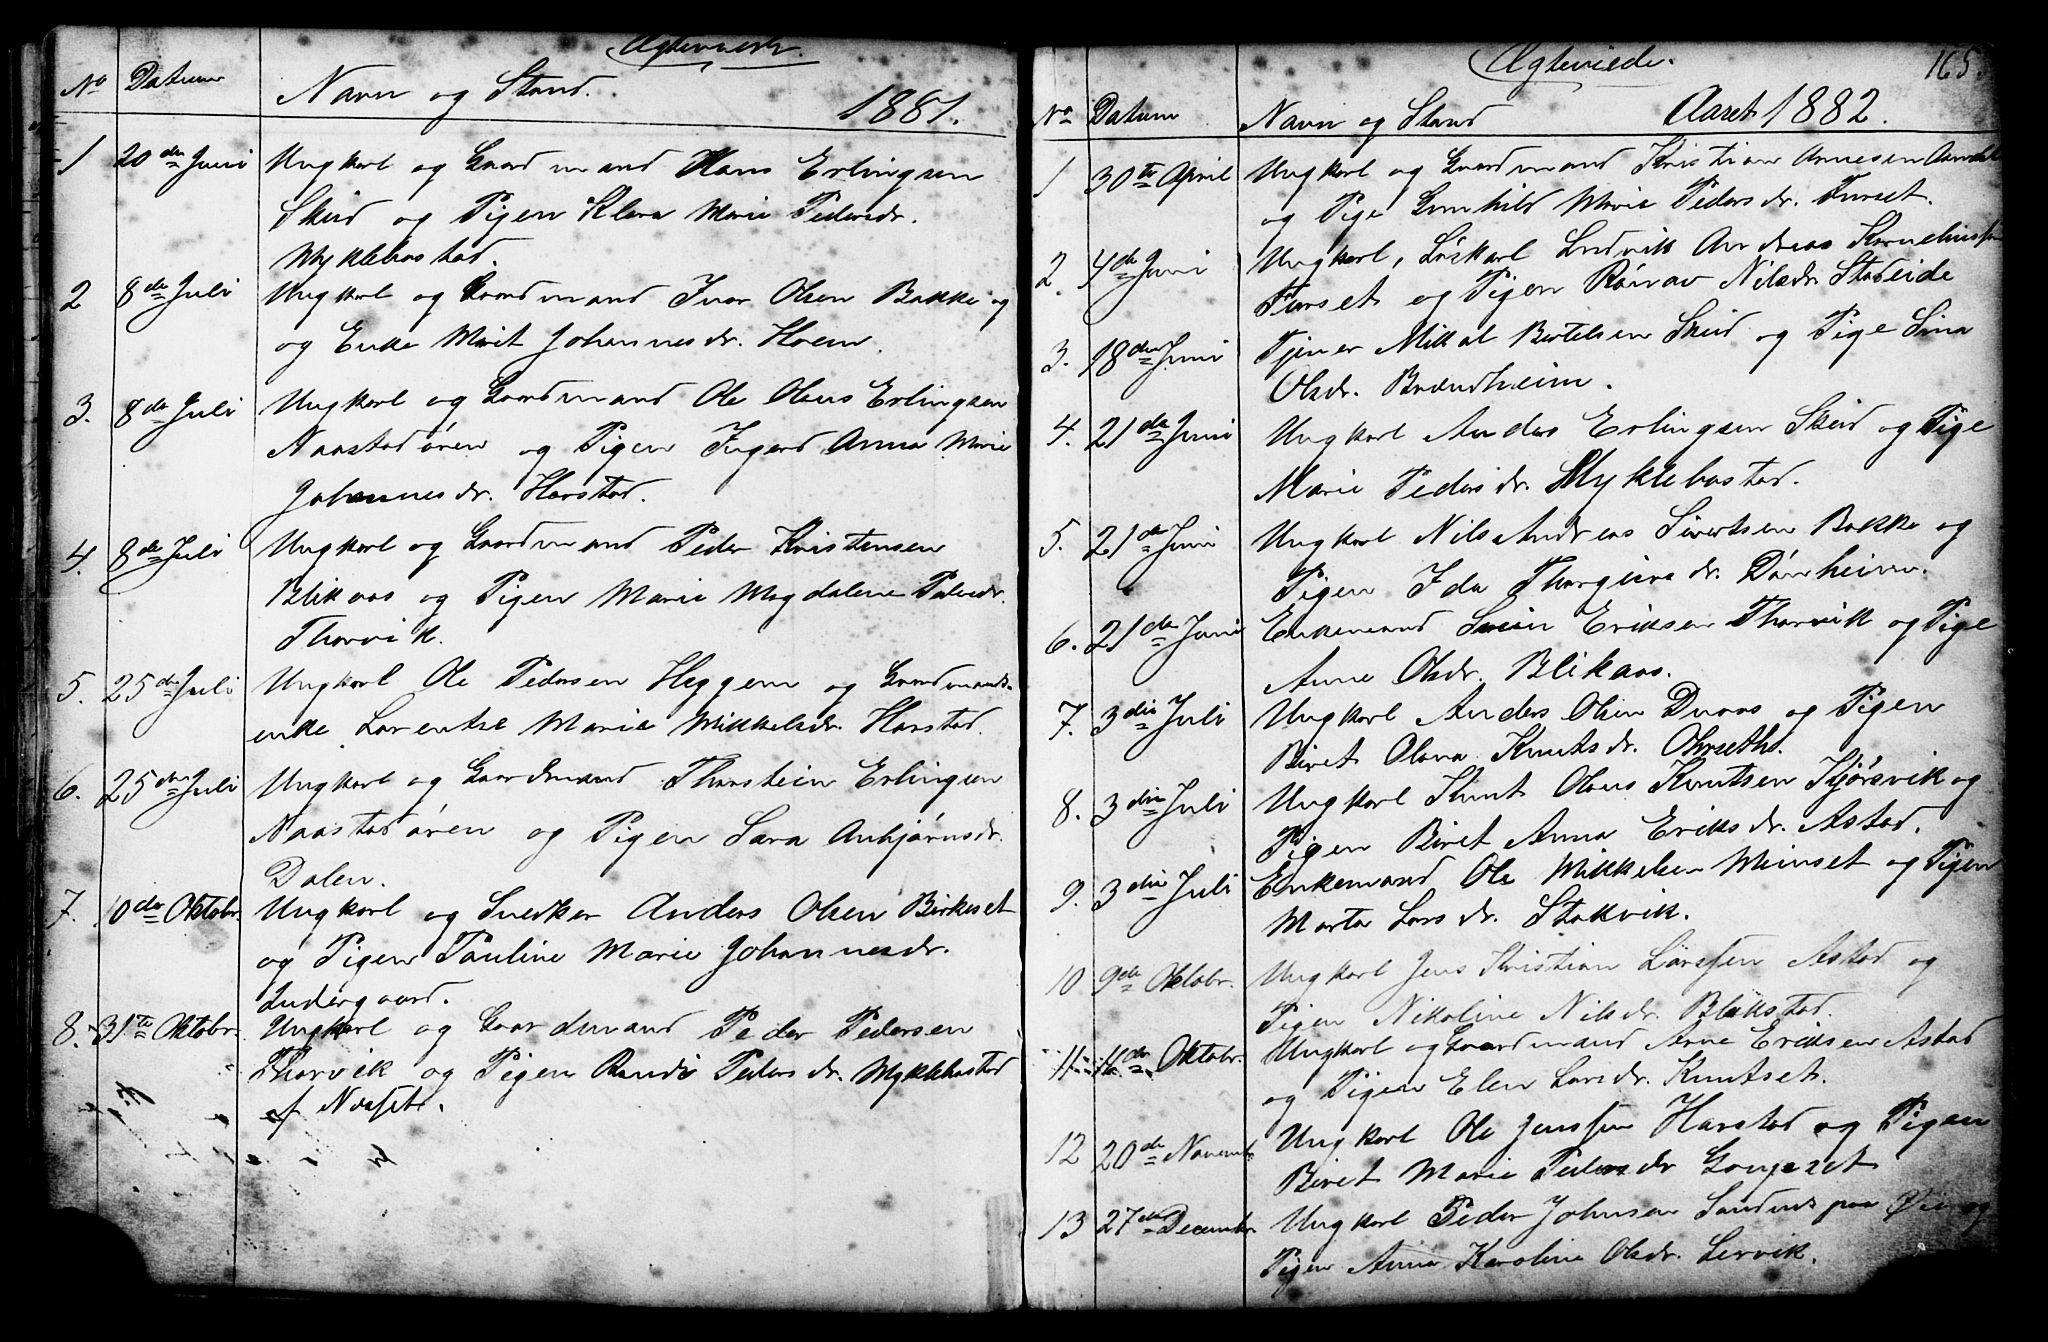 Ægteviede.
No Datum Navn og Stand. 1881.
1 20de Juni Ungkarl og Gaardmand Hans Erlingsen
Skeid og Pigen Klara Marie Pedersdr.
Myklebostad.
2 8de Juli Ungkarl og Gaardmand Ivar Olsen Bakke og
og Enke Marit Johannesdr. Hoem.
3. 8de Juli Ungkarl og Gaardmand Ole Olaus Erlingsen
Naastadøren og Pigen Ingerd Anna Marie
Johannesdr. Harstad.
4. 8de Juli Ungkarl og Gaardmand Peder Kristensen
Blikaas og Pigen Marie Magdalene Pedersdr.
Thorvik.
5. 25de Juli Ungkarl Ole Pedersen Heggem og Gaardmands-
enke Lorentse Marie Mikkelsdr. Harstad.
6. 25de Juli Ungkarl og Gaardmand Thorstein Erlingsen
Naastadøren og Pigen Sara Anbjørnsdr.
Dalen.
7. 10de Oktobr. Ungkarl og Snedker Anders Olsen Birkeset
og Pigen Pauline Marie Johannesdr.
Indergaard.
8. 31te Oktobr. Ungkarl og Gaardmand Peder Pedersen
Thorvik og Pigen Randi Pedersdr. Myklebostad
af Næsset.
Ægteviede. 165.
No Datum Navn og Stand Aaret 1882.
1 30te April Ungkarl og Gaardmand Kristian Arnesen
og Pige Gunhild Marie Pedersdr. Furset.
2. 4de Juni Ungkarl, Løskarl Ludvik Andreas
Furset og Pigen Rønnav Nilsdr. Stadeide
3. 18de Juni Tjener Mikal Bertelsen Skeid og Pige Sina
Olsdr. Brændheim.
4. 21de Juni Ungkarl Anders Erlingsen Skeid og Pige
Marie Pedersdr. Myklebostad.
5. 21de Juni Ungkarl Nils Andreas Sivertsen Bakke og
Pigen Ida Thorgiersdr. Dønheim.
6. 21de Juni Enkemand Svein Eriksen Thorvik og Pige
Anne Olsdr. Blikaas.
7. 3die Juli Ungkarl Anders Olsen Duaas og Pigen
Beret Olava Knutsdr. Ohrseth.
8. 3die Juli Ungkarl Knut Olaus Knutsen Kjørsvik og
Pigen Beret Anna Eriksdr. Astad.
9. 3die Juli Enkemand Ole Mikkelsen Meinset og Pigen
Marta Larsdr. Stokvik.
10 9de Oktobr. Ungkarl Jens Kristian Larssen Astad og
Pigen Nikoline Nilsdr. Blikstad.
11 11de Oktobr. Ungkarl og Gaardmand Arne Eriksen Astad
og Pigen Elen Larsdr. Knutset.
12 20de Novembr. Ungkarl Ole Jenssen Harstad og Pigen
Beret Marie Pedersdr Gaupset
13 27de Decembr. Ungkarl Peder Johnsen Sandnes paa Øie og
Pigen Anne Karoline Olsdr. Lervik.